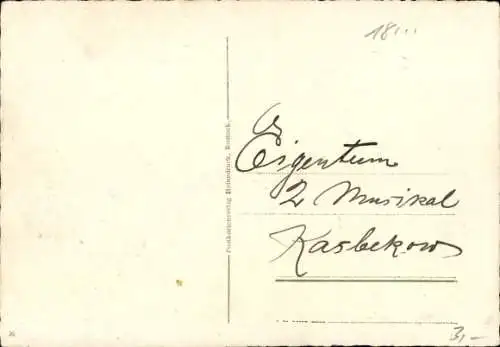 18...
Eigentum
2 Musikal
Kasbekow
Postkartenverlag Reinicke, Rostock.
3,-